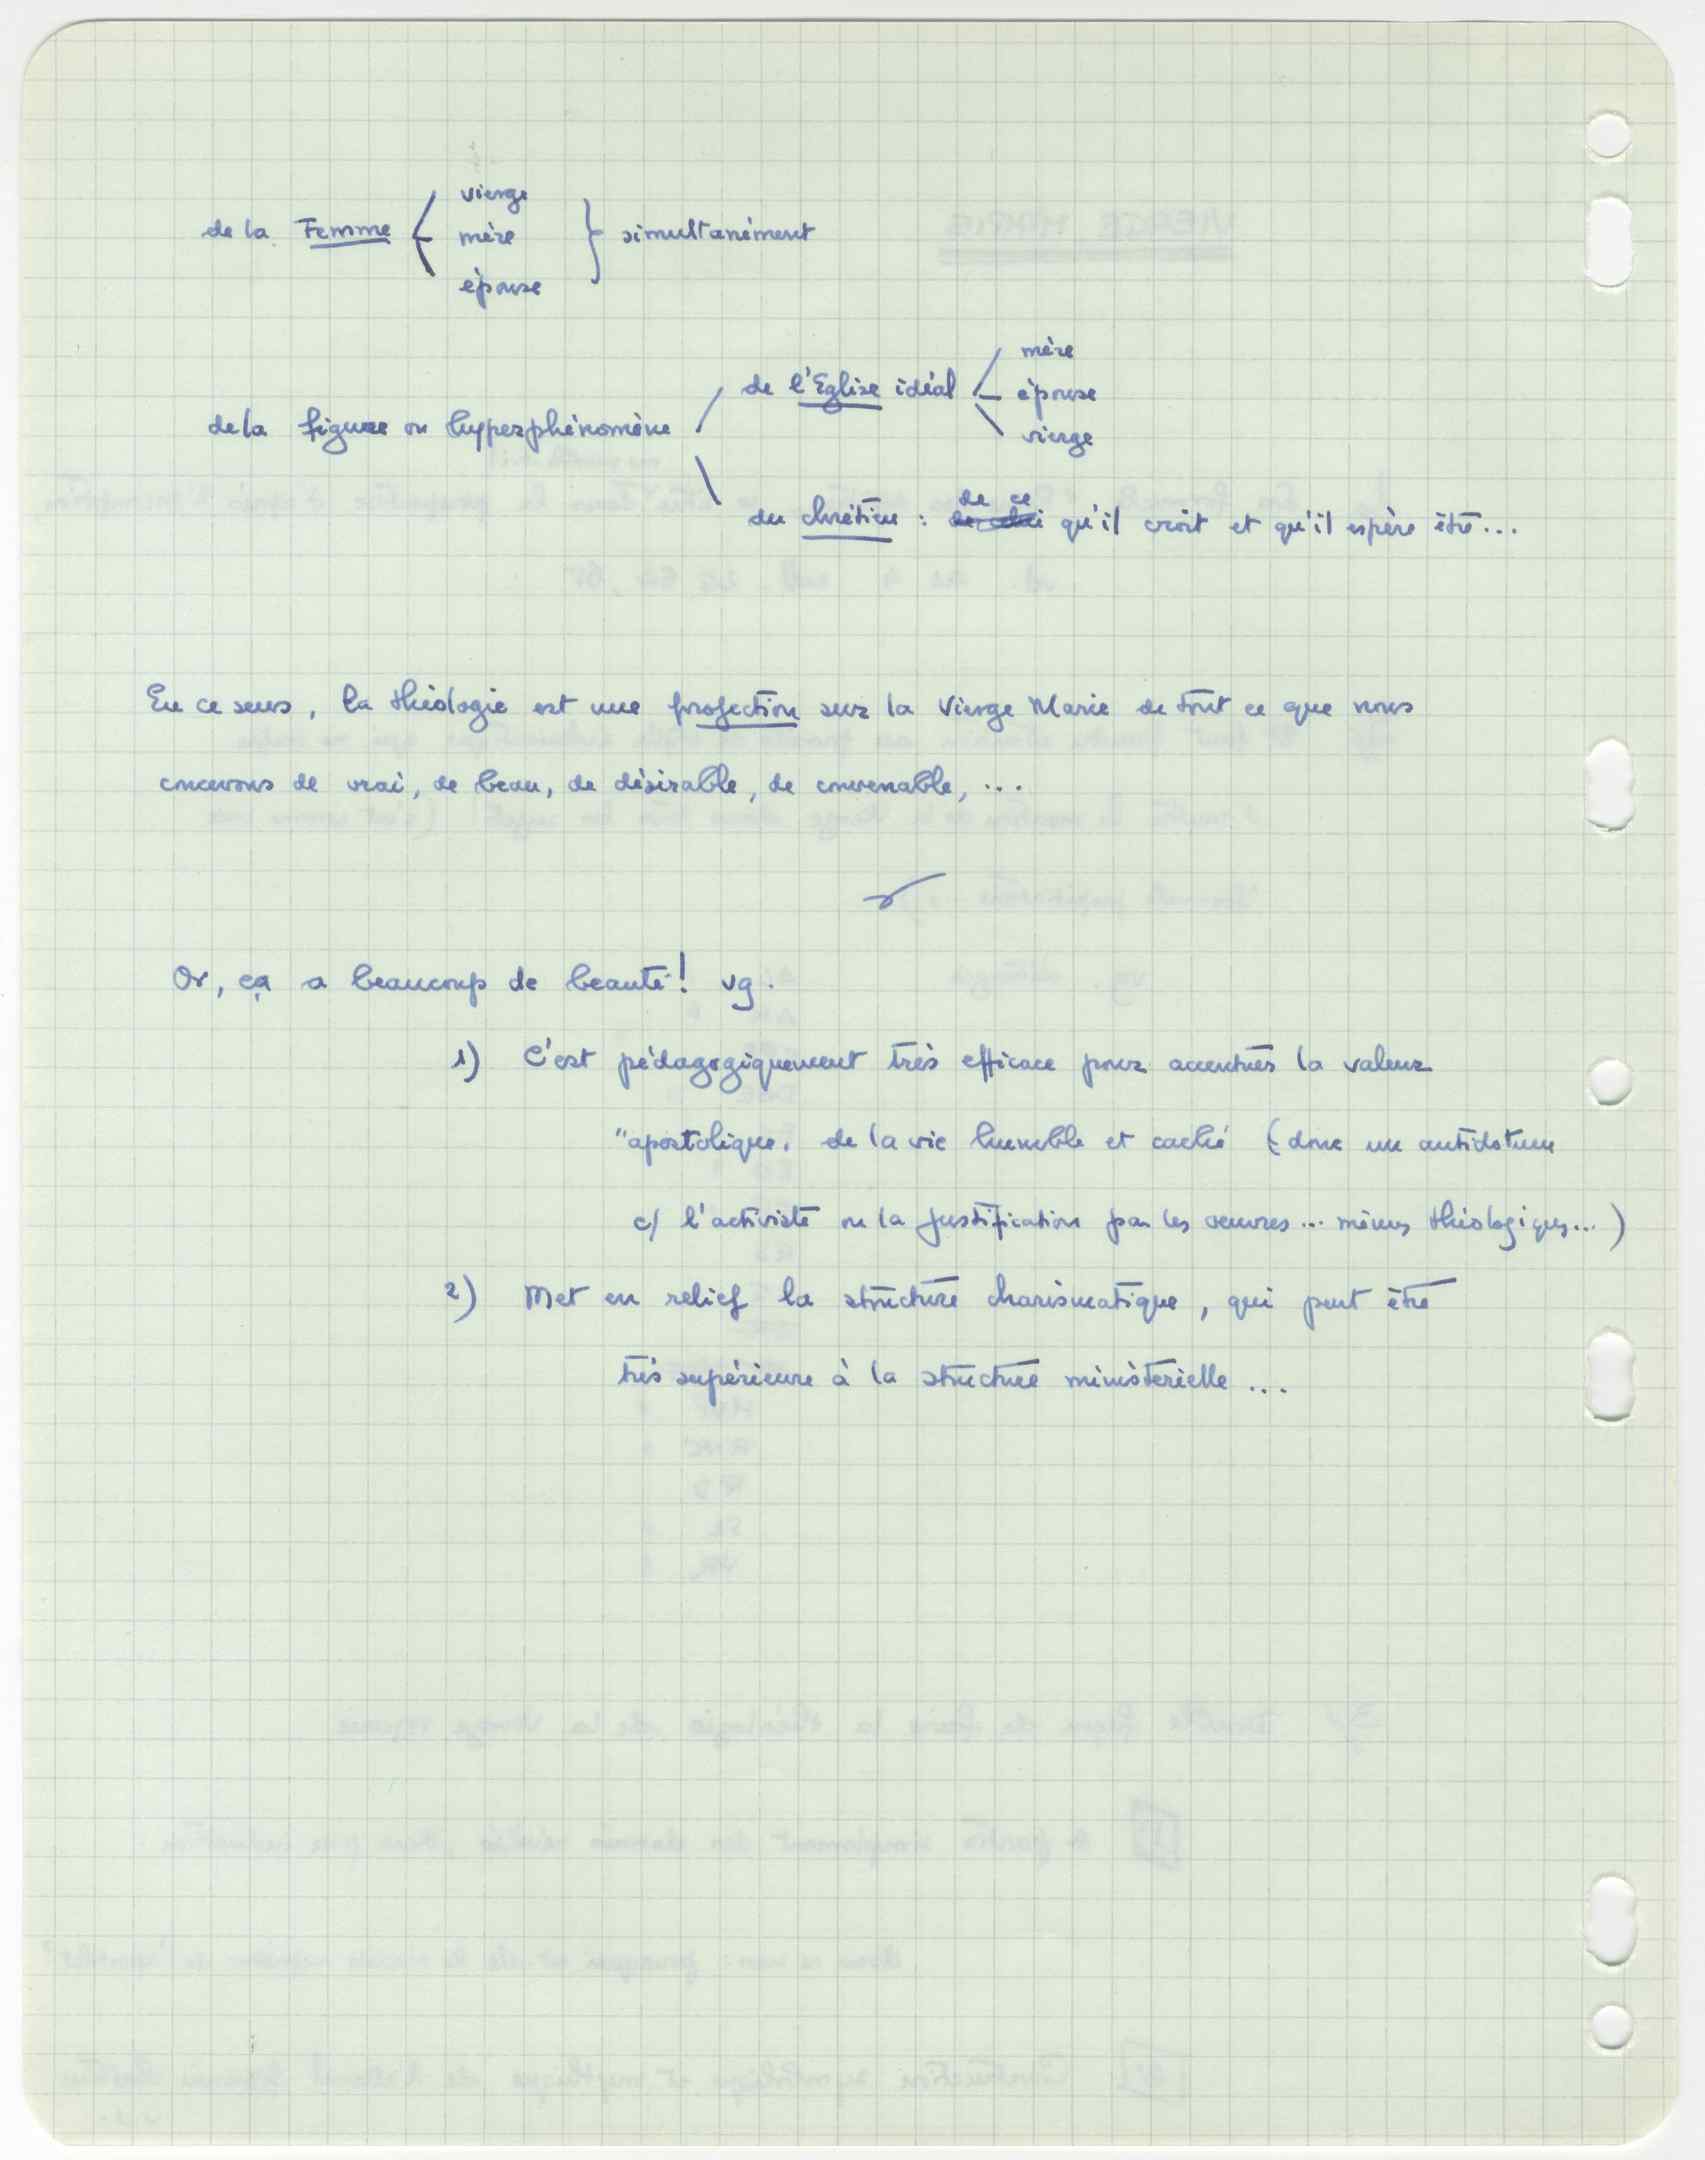 vierge
de la Femme mère simultanément
épouse
mère
de l'Eglise idéal épouse
de la figure ou hyperphénomène
vierge
de ce
du chrétien : de celui qu'il croit et qu'il espère être...
En ce sens, la théologie est une projection sur la Vierge Marie de tout ce que nous
concevons de vrai, de beau, de désirable, de convenable, ...
Or, ça a beaucoup de beauté! vg.
1) C'est pédagogiquement très efficace pour accentuer la valeur
"apostolique" de la vie humble et caché (donc un antidotum
c/ l'activisté ou la justification par les oeuvres... mêmes théologiques...)
2) Met en relief la structure charismatique, qui peut être
très supérieure à la structure ministérielle ...